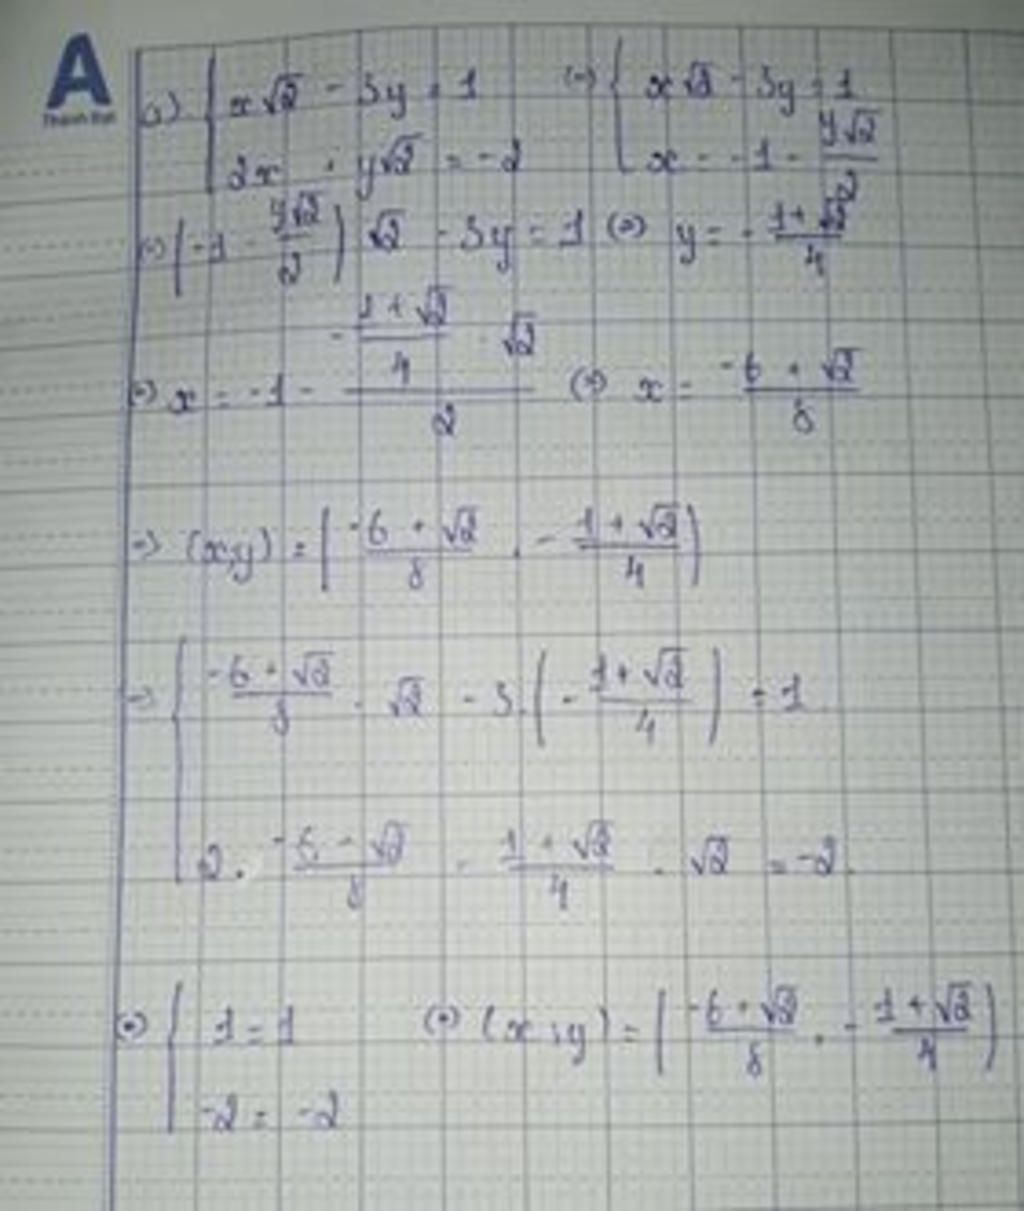 A
a) { x√2 - 3y = 1 (=) { x√2 - 3y = 1
2x + y√2 = -2 x = -1 - y√2/2
(=) (-1 - y√2/2) √2 - 3y = 1 (=) y = - (1+√2)/4
(=) x = -1 - (-(1+√2)/4 . √2)/2 (=) x = (-6 + √2)/8
=) (x,y) = ((-6 + √2)/8 , - (1+√2)/4)
=) { (-6 + √2)/8 . √2 - 3.(- (1+√2)/4) = 1
2. (-6 + √2)/8 - (1+√2)/4 . √2 = -2
(=) { 1 = 1 (=) (x,y) = ((-6 + √2)/8 , - (1+√2)/4)
-2 = -2